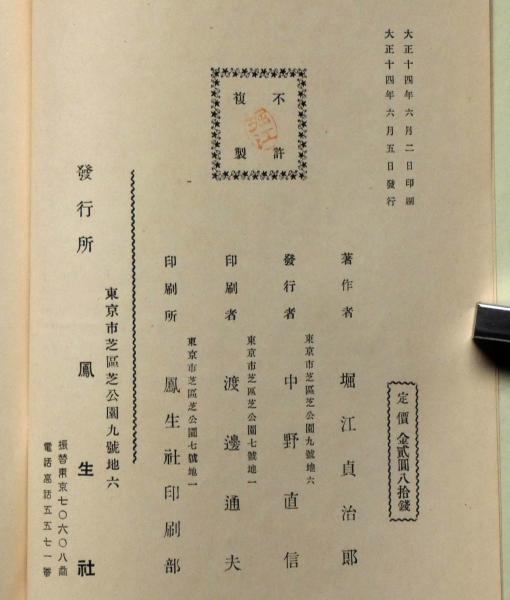 大正十四年六月二日印刷
大正十四年六月五日發行
不許
複製
堀江
定價金貳圓八拾錢
著作者　堀江貞治郎
東京市芝區芝公園九號地六
發行者　中野直信
東京市芝區芝公園七號地一
印刷者　渡邊通夫
東京市芝區芝公園七號地一
印刷所　鳳生社印刷部
東京市芝區芝公園九號地六
發行所　鳳生社
振替東京七〇六〇八番
電話高輪五五七一番